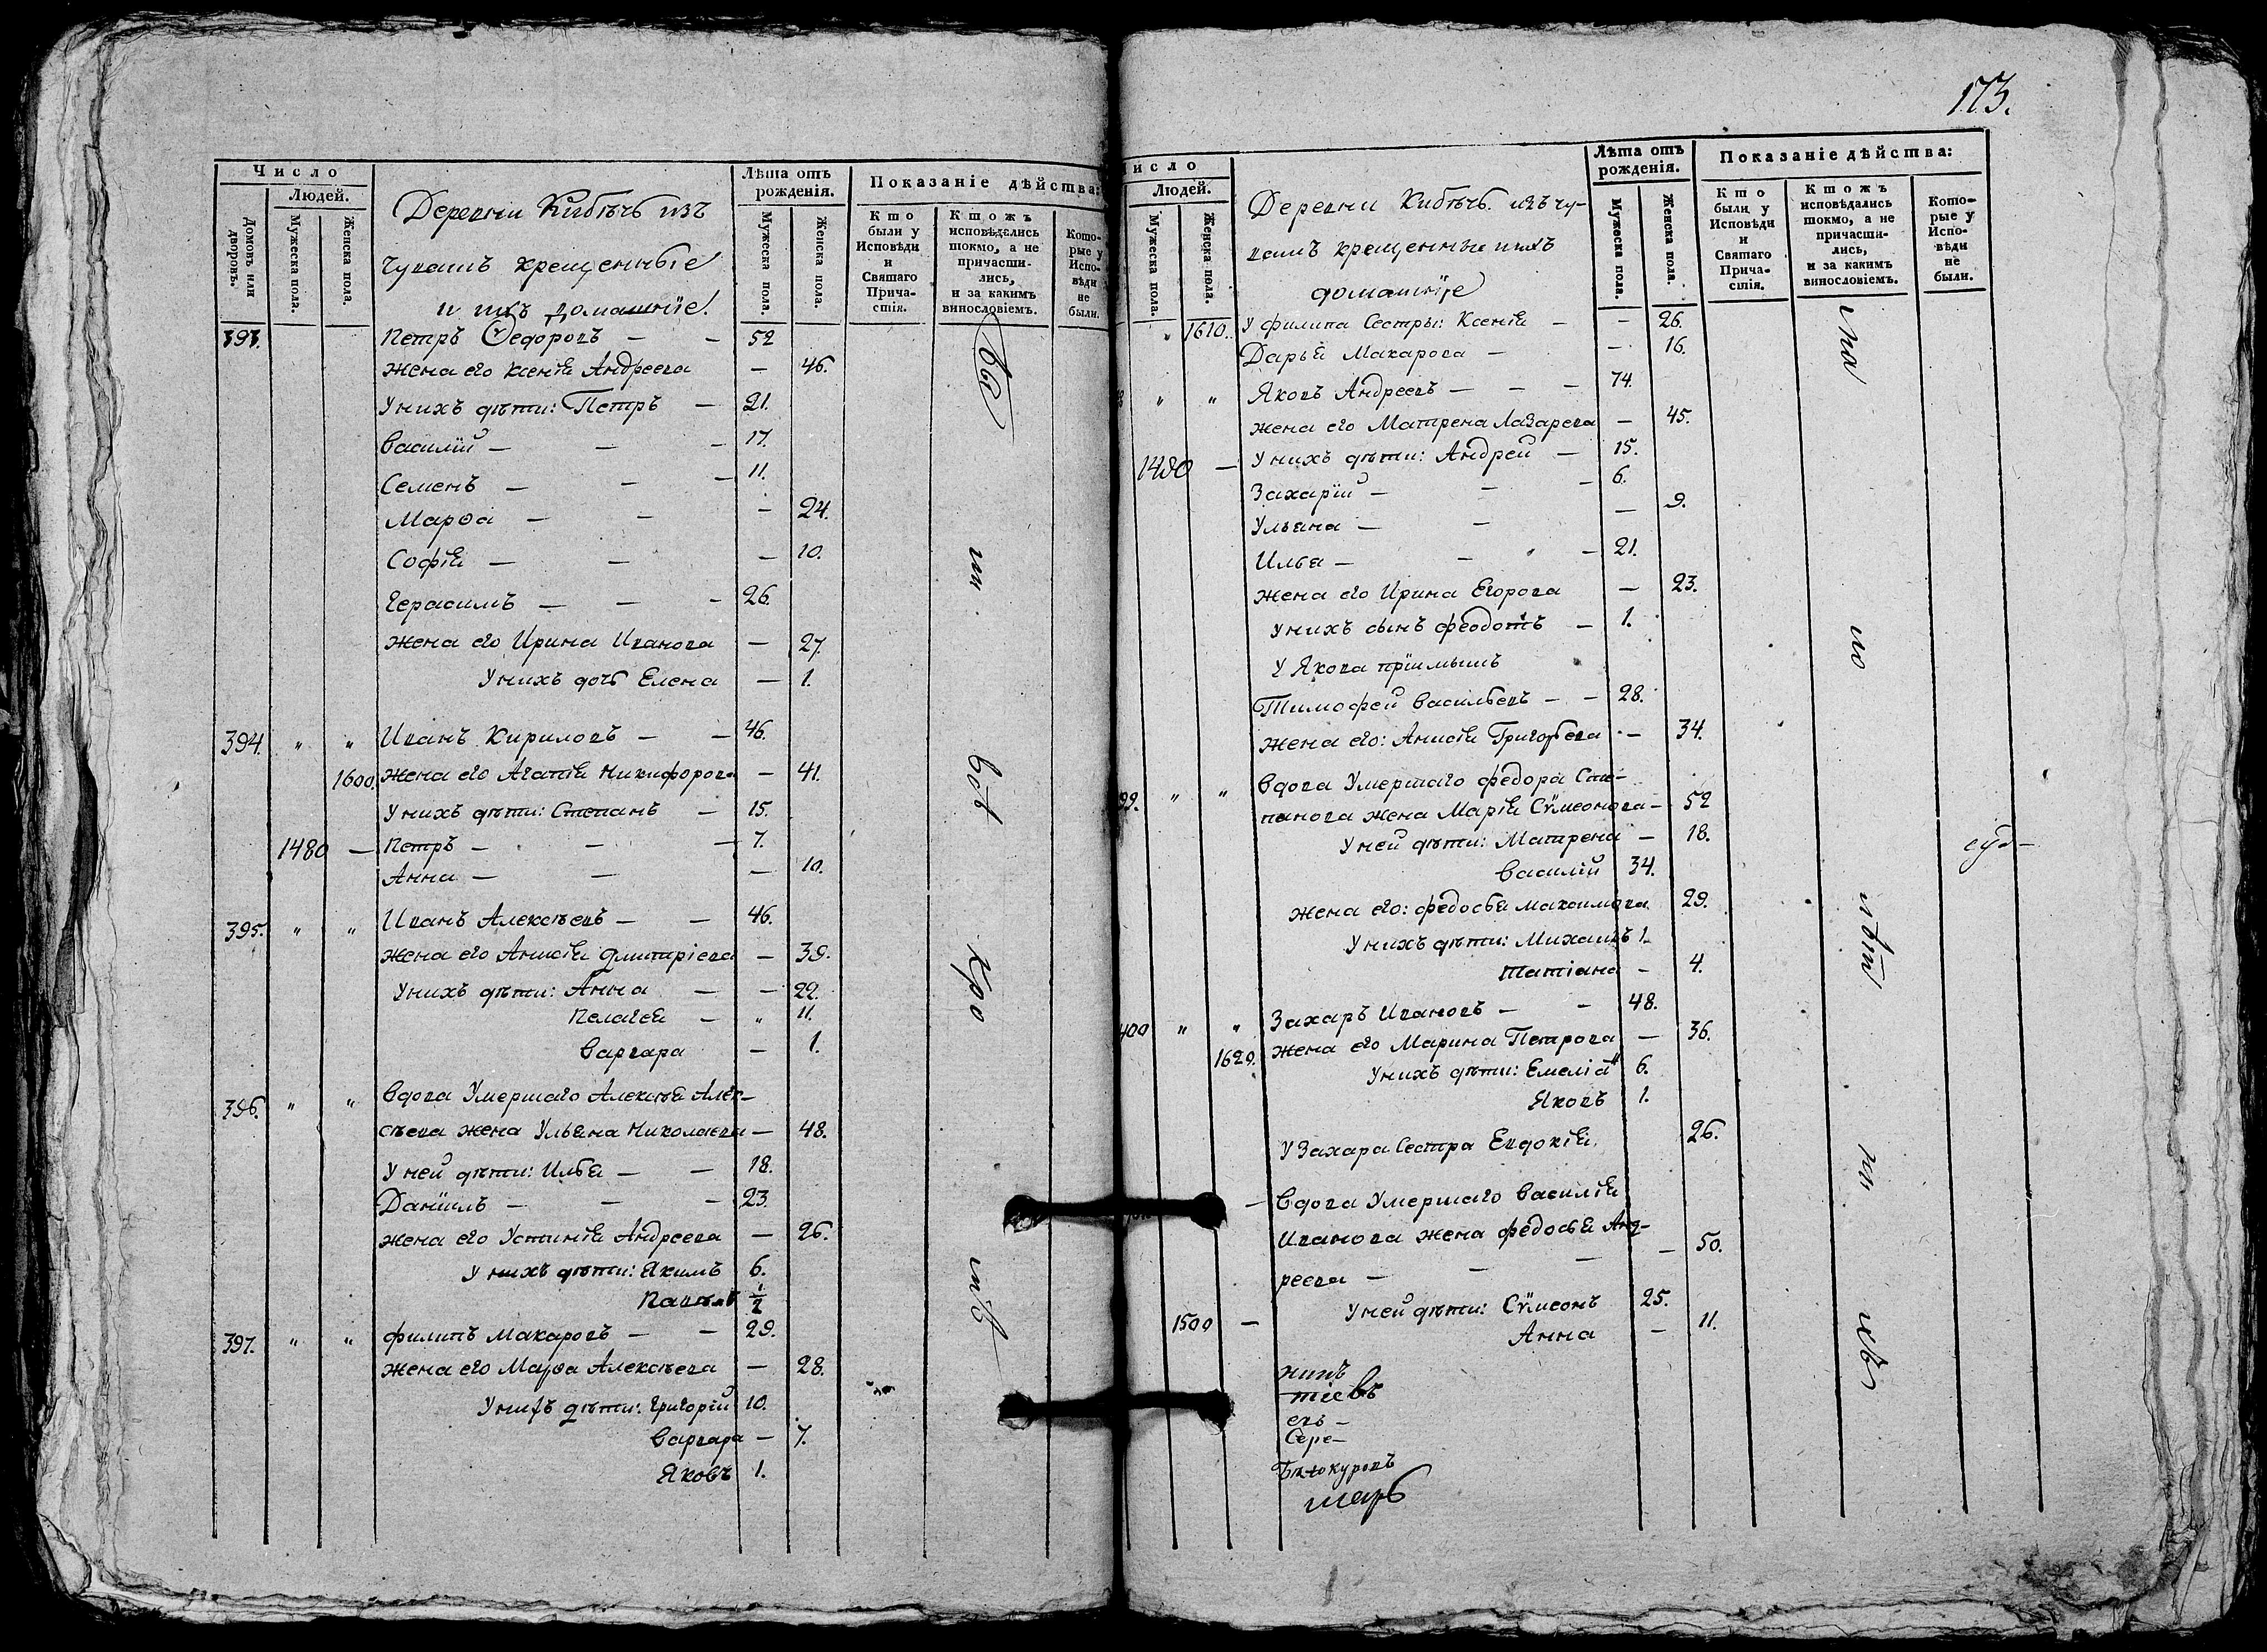 173.
Число
Людей.
Домовъ или дворовъ.
Мужеска пола.
Женска пола.
Деревни Кибѣчь изъ
чувашъ крещенные
и ихъ домашнiе.
Лѣта отъ рожденiя.
Мужеска пола.
Женска пола.
Показанiе дѣйства:
Кто были у Исповѣди и Святаго Причастiя.
Ктожъ исповѣдались токмо, а не причастились, и за какимъ винословiемъ.
Которые у Исповѣди не были.
393. Петръ Ѳедоровъ — — 52
жена его Ксенiя Андреева — 46.
У нихъ дѣти: Петръ — 21.
Василiй — — — 17.
Семенъ — — — 11.
Марѳа — — — 24.
Софiя — — — 10.
Герасимъ — — — 26.
жена его Ирина Иванова — 27.
У нихъ дочь Елена — 1.
394. " " Иванъ Кириловъ — — 46.
1600. жена его Агапiя Никифорова — 41.
У нихъ дѣти: Степанъ — 15.
1480 — Петръ — — — 7.
Анна — — — 10.
395. " " Иванъ Алексѣевъ — — 46.
жена его Анисiя Димитрiева — 39.
У нихъ дѣти: Анна — — 22.
Пелагея — " 11.
Варвара — 1.
396. " " Вдова Умершаго Алексѣя Алек-
сѣева жена Ульяна Николаева — 48.
У ней дѣти: Илья — — 18.
Данiилъ — — — 23.
жена его Устинiя Андреева — 26.
У нихъ дѣти: Якимъ 6.
Павелъ 1/2
397. " " Филипъ Макаровъ — — 29.
жена его Марѳа Алексѣева — 28.
У нихъ дѣти: Григорiй 10.
Варвара — 7.
Яковъ 1.
Число
Людей.
Мужеска пола.
Женска пола.
Деревни Кибѣчь. изъ чу-
вашъ крещенные и ихъ
домашнiе
Лѣта отъ рожденiя.
Мужеска пола.
Женска пола.
Показанiе дѣйства:
Кто были у Исповѣди и Святаго Причастiя.
Ктожъ исповѣдались токмо, а не причастились, и за какимъ винословiемъ.
Которые у Исповѣди не были.
" 1610. У Филипа Сестры: Ксенiя — — 26.
Дарья Макарова — — 16.
" " Яковъ Андреевъ — — — 74.
жена его Матрена Лазарева — 45.
1490 — У нихъ дѣти: Андрей — 15.
Захарiй — — — 6.
Ульяна — — — 9.
Илья — — — 21.
жена его Ирина Егорова — 23.
У нихъ сынъ Феодотъ — 1.
У Якова прiимышъ
Тимофей Васильевъ — — 28.
жена его: Анисiя Григорьева — 34.
99. " " Вдова Умершаго Федора Сте-
панова жена Марiя Сѵмеонова — 52
У ней дѣти: Матрена — 18.
Василiй 34.
жена его: Федосья Максимова 29.
У нихъ дѣти: Михаилъ 1.
Татiана — 4.
400 " " Захаръ Ивановъ — — 48.
1620. жена его Марина Петрова — 36.
У нихъ дѣти: Емелiа 6.
Яковъ 1.
У Захара Сестра Евдокiя. 26.
— Вдова Умершаго Василiя
Иванова жена Федосья Анд-
реева — — — — 50.
У ней дѣти: Сѵмеонъ 25.
1500 — Анна — 11.
нинъ
тiевъ
евъ —
Сере-
Бѣлокуровъ